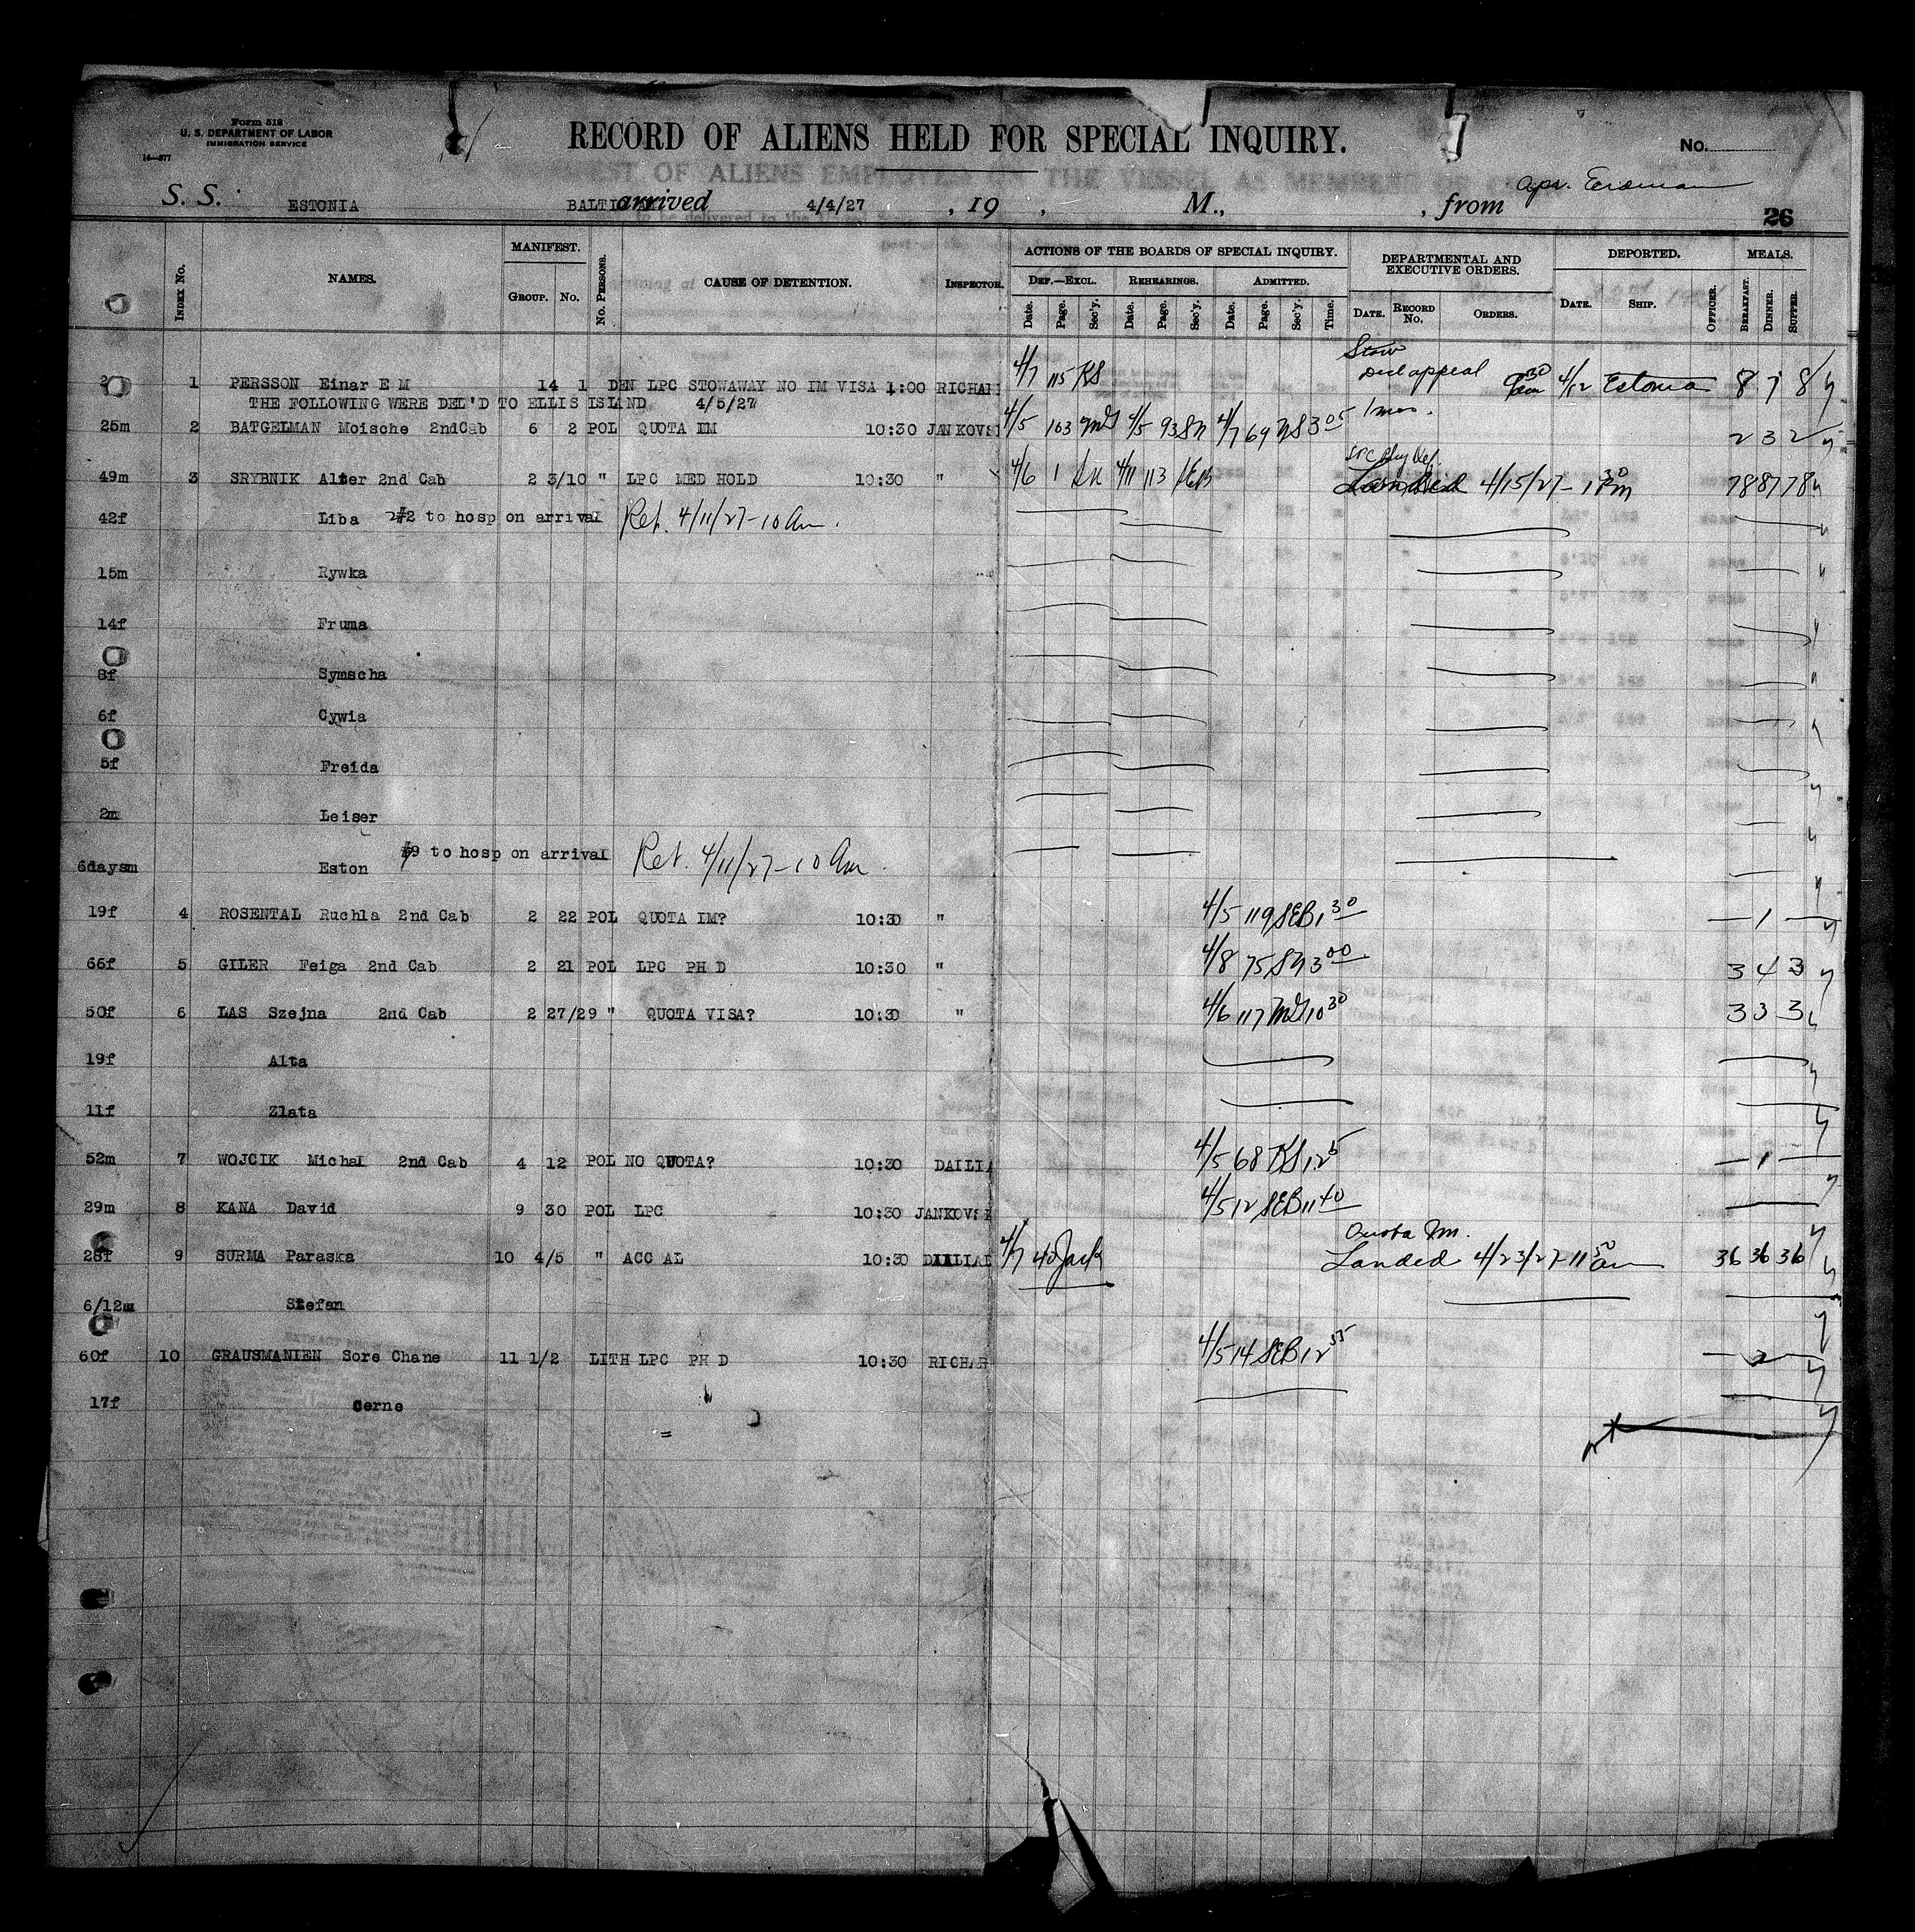 Form 518
U. S. DEPARTMENT OF LABOR
IMMIGRATION SERVICE
14—577
RECORD OF ALIENS HELD FOR SPECIAL INQUIRY.
No.
S. S. ESTONIA BALTIC arrived 4/4/27 , 19 , M., , from
26
Index No. NAMES. MANIFEST. Group. No. No. Persons. CAUSE OF DETENTION. Inspector. ACTIONS OF THE BOARDS OF SPECIAL INQUIRY. DEPARTMENTAL AND EXECUTIVE ORDERS. DEPORTED. MEALS.
Def.—Excl. Rehearings. Admitted.
Date. Page. Sec'y. Date. Page. Sec'y. Date. Page. Sec'y. Time. Date. Record No. Orders. Date. Ship. Officer. Breakfast. Dinner. Supper.
Stow
1 PERSSON Einar E M 14 1 DEN LPC STOWAWAY NO IM VISA 1:00 RICHAR 4/7 115 RS appeal 4/12 Estonia 8 7 8
THE FOLLOWING WERE DEL'D TO ELLIS ISLAND 4/5/27
25m 2 BATGELMAN Moische 2ndCab 6 2 POL QUOTA IM 10:30 JANKOVS 4/5 103 4/5 93 SN 4/7 69 3 05 2 3 2
49m 3 SRYBNIK Alter 2nd Cab 2 3/10 " LPC MED HOLD 10:30 " 4/6 1 4/11 113 Landed 4/15/27 - 1 30 Pm 78 87 78
42f Liba #2 to hosp on arrival Ret. 4/11/27 - 10 Am.
15m Rywka
14f Fruma
8f Symscha
6f Cywia
5f Freida
2m Leiser
6daysm Eston #9 to hosp on arrival Ret. 4/11/27 - 10 Am.
19f 4 ROSENTAL Ruchla 2nd Cab 2 22 POL QUOTA IM? 10:30 " 4/5 119 SEB 1 30 — 1 —
66f 5 GILER Feiga 2nd Cab 2 21 POL LPC PH D 10:30 " 4/8 75 SN 3 00 3 4 3
50f 6 LAS Szejna 2nd Cab 2 27/29 " QUOTA VISA? 10:30 " 4/6 117 10 30 3 3 3
19f Alta
11f Zlata
52m 7 WOJCIK Michal 2nd Cab 4 12 POL NO QUOTA? 10:30 DAILIA 4/5 68 RS — 1 —
29m 8 KANA David 9 30 POL LPC 10:30 JANKOVSK 4/5 12 SEB 11 40
Quota Im.
28f 9 SURMA Paraska 10 4/5 " ACC AL 10:30 4/7 40 Jack Landed 4/23/27 - 11 50 am 36 36 36
6/12m Stefan
60f 10 GRAUSMANIEN Sore Chane 11 1/2 LITH LPC PH D 10:30 RICHAR 4/5 14 SEB 12 55 — 2 —
17f Cerne